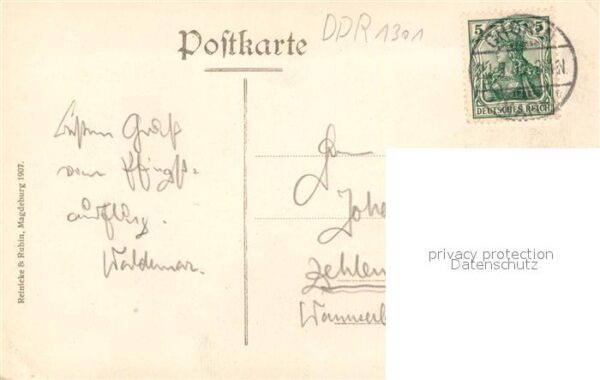 Postkarte
DDR 1301
5 5
DEUTSCHES REICH
Reinicke & Rubin, Magdeburg 1907.
Gruß
vom Pfingst=
ausflug.
Waldemar.
Zehlen
privacy protection
Datenschutz